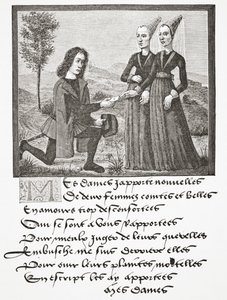 Mes dames japporte nouvelles
De deux femmes contes et belles
En amours trop desconfortees
Qui se sont a vous rapportees
Pour jugez de leurs querelles
me suis derriere elles
Pour ouir leurs plaintes mortelles
En escript les ay apportees
Mes dames